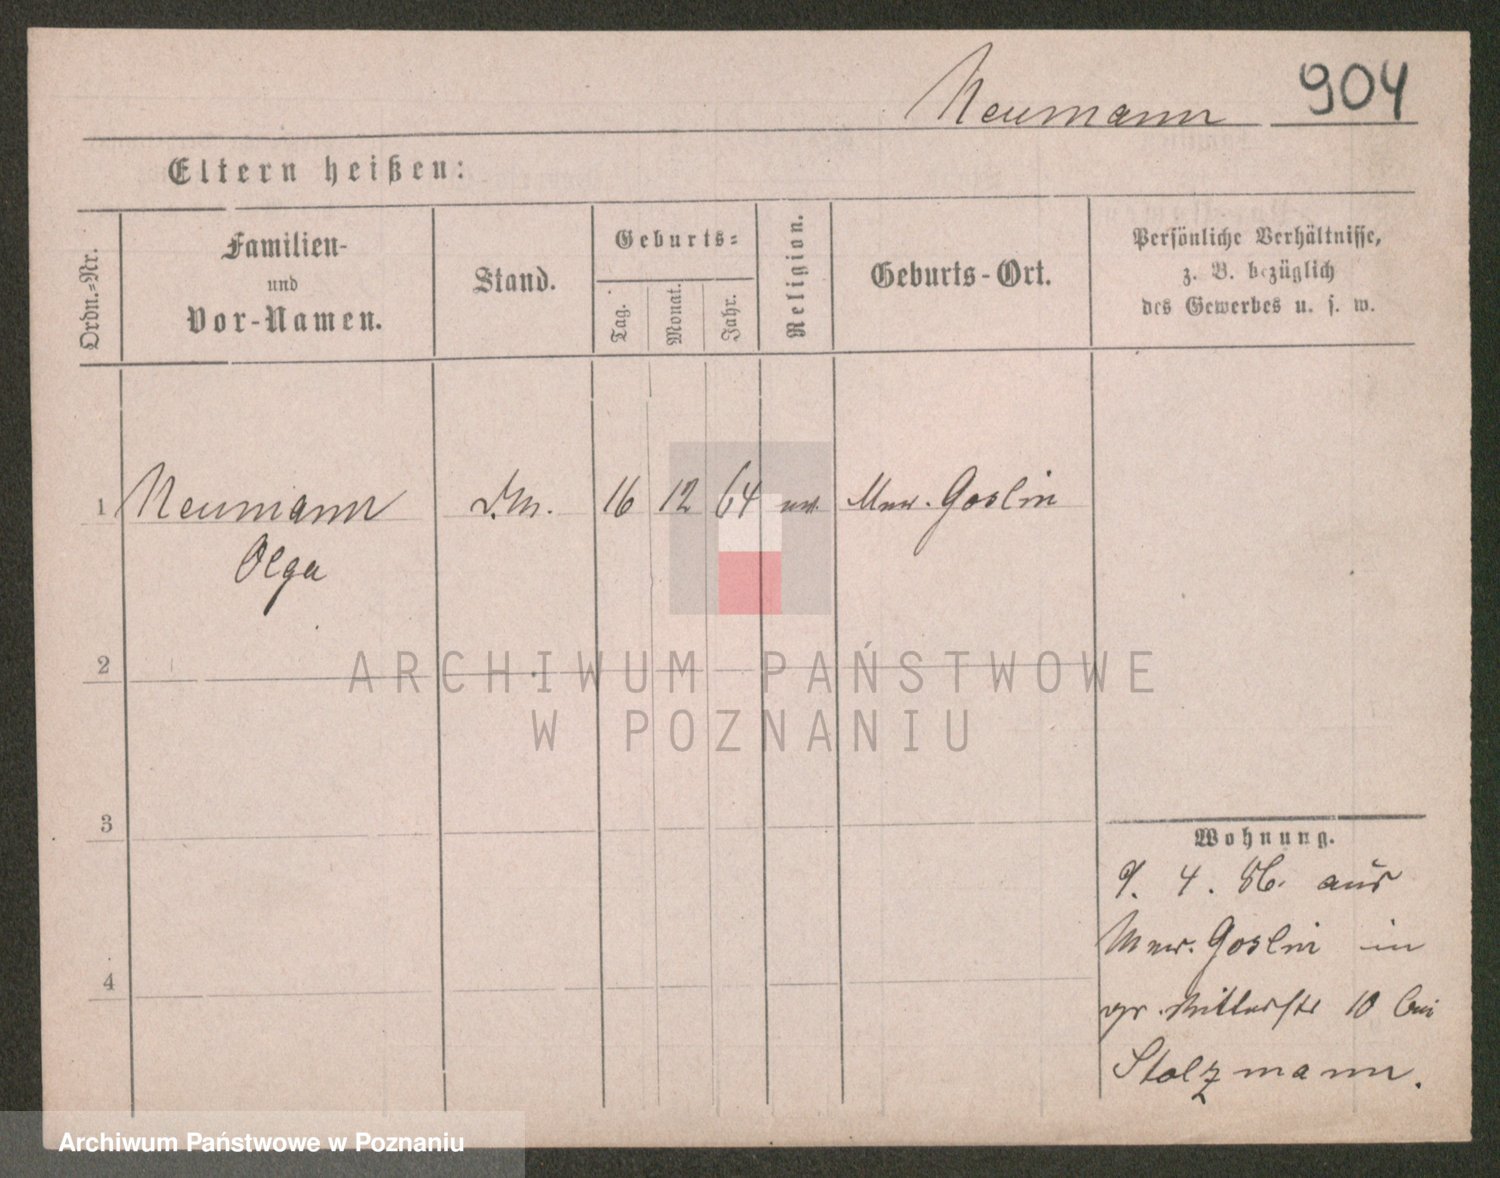 Neumann 904
Eltern heißen:
Ordn.-Nr.
Familien-
und
Vor-Namen.
Stand.
Geburts-
Tag.
Monat.
Jahr.
Religion.
Geburts-Ort.
Persönliche Verhältnisse,
z. B. bezüglich
des Gewerbes u. s. w.
1 Neumann 16 12 64 Mur. Goslin
Olga
2
3
4
ARCHIWUM PAŃSTWOWE
W POZNANIU
Wohnung.
9. 4. 86. aus
Mur. Goslin in
gr. Ritterstr 10 bei
Stolzmann.
Archiwum Państwowe w Poznaniu